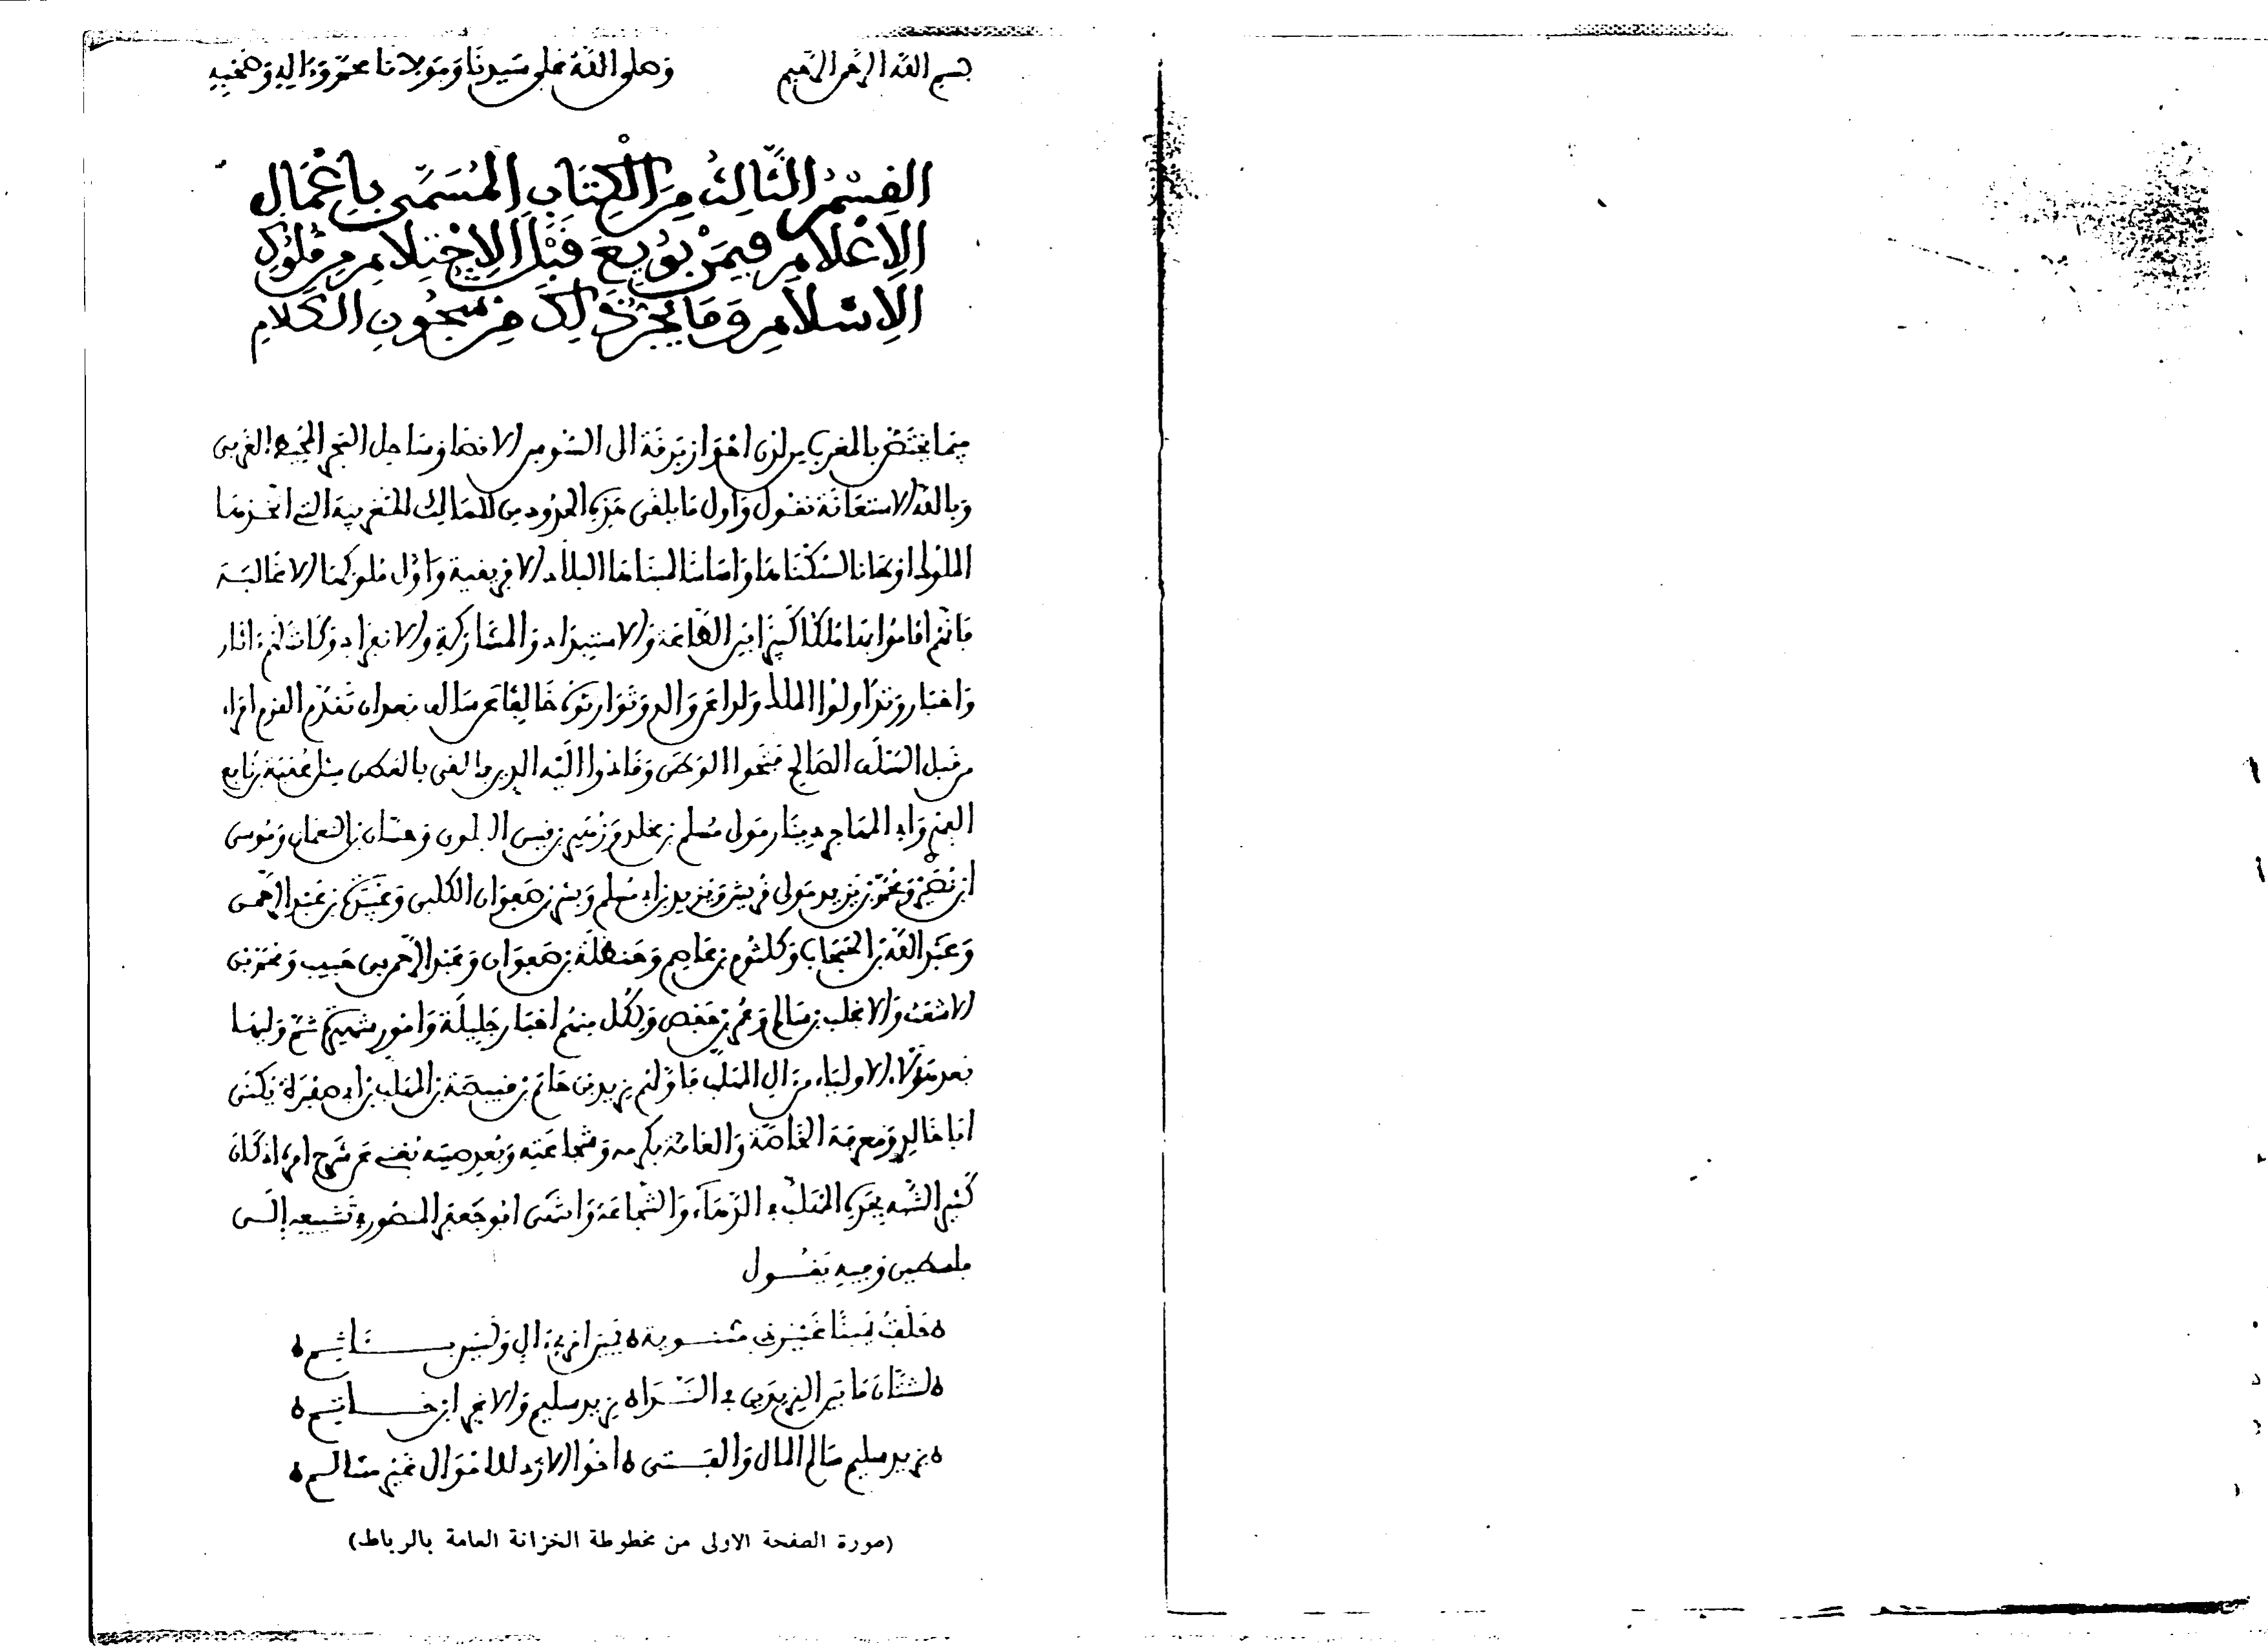 بسم الله الرحمن الرحيم وصلى الله على سيدنا ومولانا محمد وءاله وصحبه
القسم الثالث من الكتاب المسمى بإعمال
الإعلام فيمن بويع قبل الاحتلام من ملوك
الإسلام وما يجر ذلك من شجون الكلام
فيما يختص بالمغرب من لدن احواز برقة الى السوس الاقصا وساحل البحر المحيط الغربي
وبالله الاستعانة نقول واول ما يلقى من هذه الحدود من الممالك المغربية التي اتخذها
الملوك اوطانا لسكناها واساسا لبناها البلاد الافريقية واول ملوكها الاغالبة
فانهم اقاموا بها ملكا كبيرا بين الطاعة والاستبداد والمشاركة والانفراد وكانت لهم ءاثار
واخبار وتداولوا الملك ولدا عن والد وتوارثوه خالفا عن سالف بعد ان تقدم القوم امراء
من قبل السلف الصالح فتحوا الوطن وقادوا اليه الدين مثل عقبة بن نافع
الفهري وابي المهاجر دينار مولى مسلم بن مخلد وزهير بن قيس البلوي وحسان بن النعمان وموسى
ابن نصير ومحمد بن يزيد مولى قريش ويزيد بن ابي مسلم وبشر بن صفوان الكلبي وعبيدة بن عبد الرحمن
وعبد الله بن الحبحاب وكلثوم بن عياض وحنظلة بن صفوان وعبد الرحمن بن حبيب ومحمد بن
الاشعث والاغلب بن سالم وعمر بن حفص ولكل منهم اخبار جليلة وامور شهيرة ثم وليها
بعد هؤلاء الاولياء من ءال المهلب فاولهم يزيد بن حاتم بن قبيصة بن المهلب بن ابي صفرة يكنى
ابا خالد ومعرفة الخاصة والعامة بكرمه وشجاعته وبعد صيته يغني عن شرح امره اذ كان
كثير الشبه بجده المهلب في الدهاء والشجاعة وانتهى ابو جعفر المنصور في تشييعه إلى
فلسطين وفيه يقول
حلفت يمينا غير ذي مثنوية يمين امرئ ءالى وليس بئاثم
لشتان ما بين اليزيدين في الندا يزيد سليم والاغر ابن حاتم
يزيد سليم سالم المال والفتى اخو الازد للاموال غير مسالم
(صورة الصفحة الاولى من مخطوطة الخزانة العامة بالرباط)